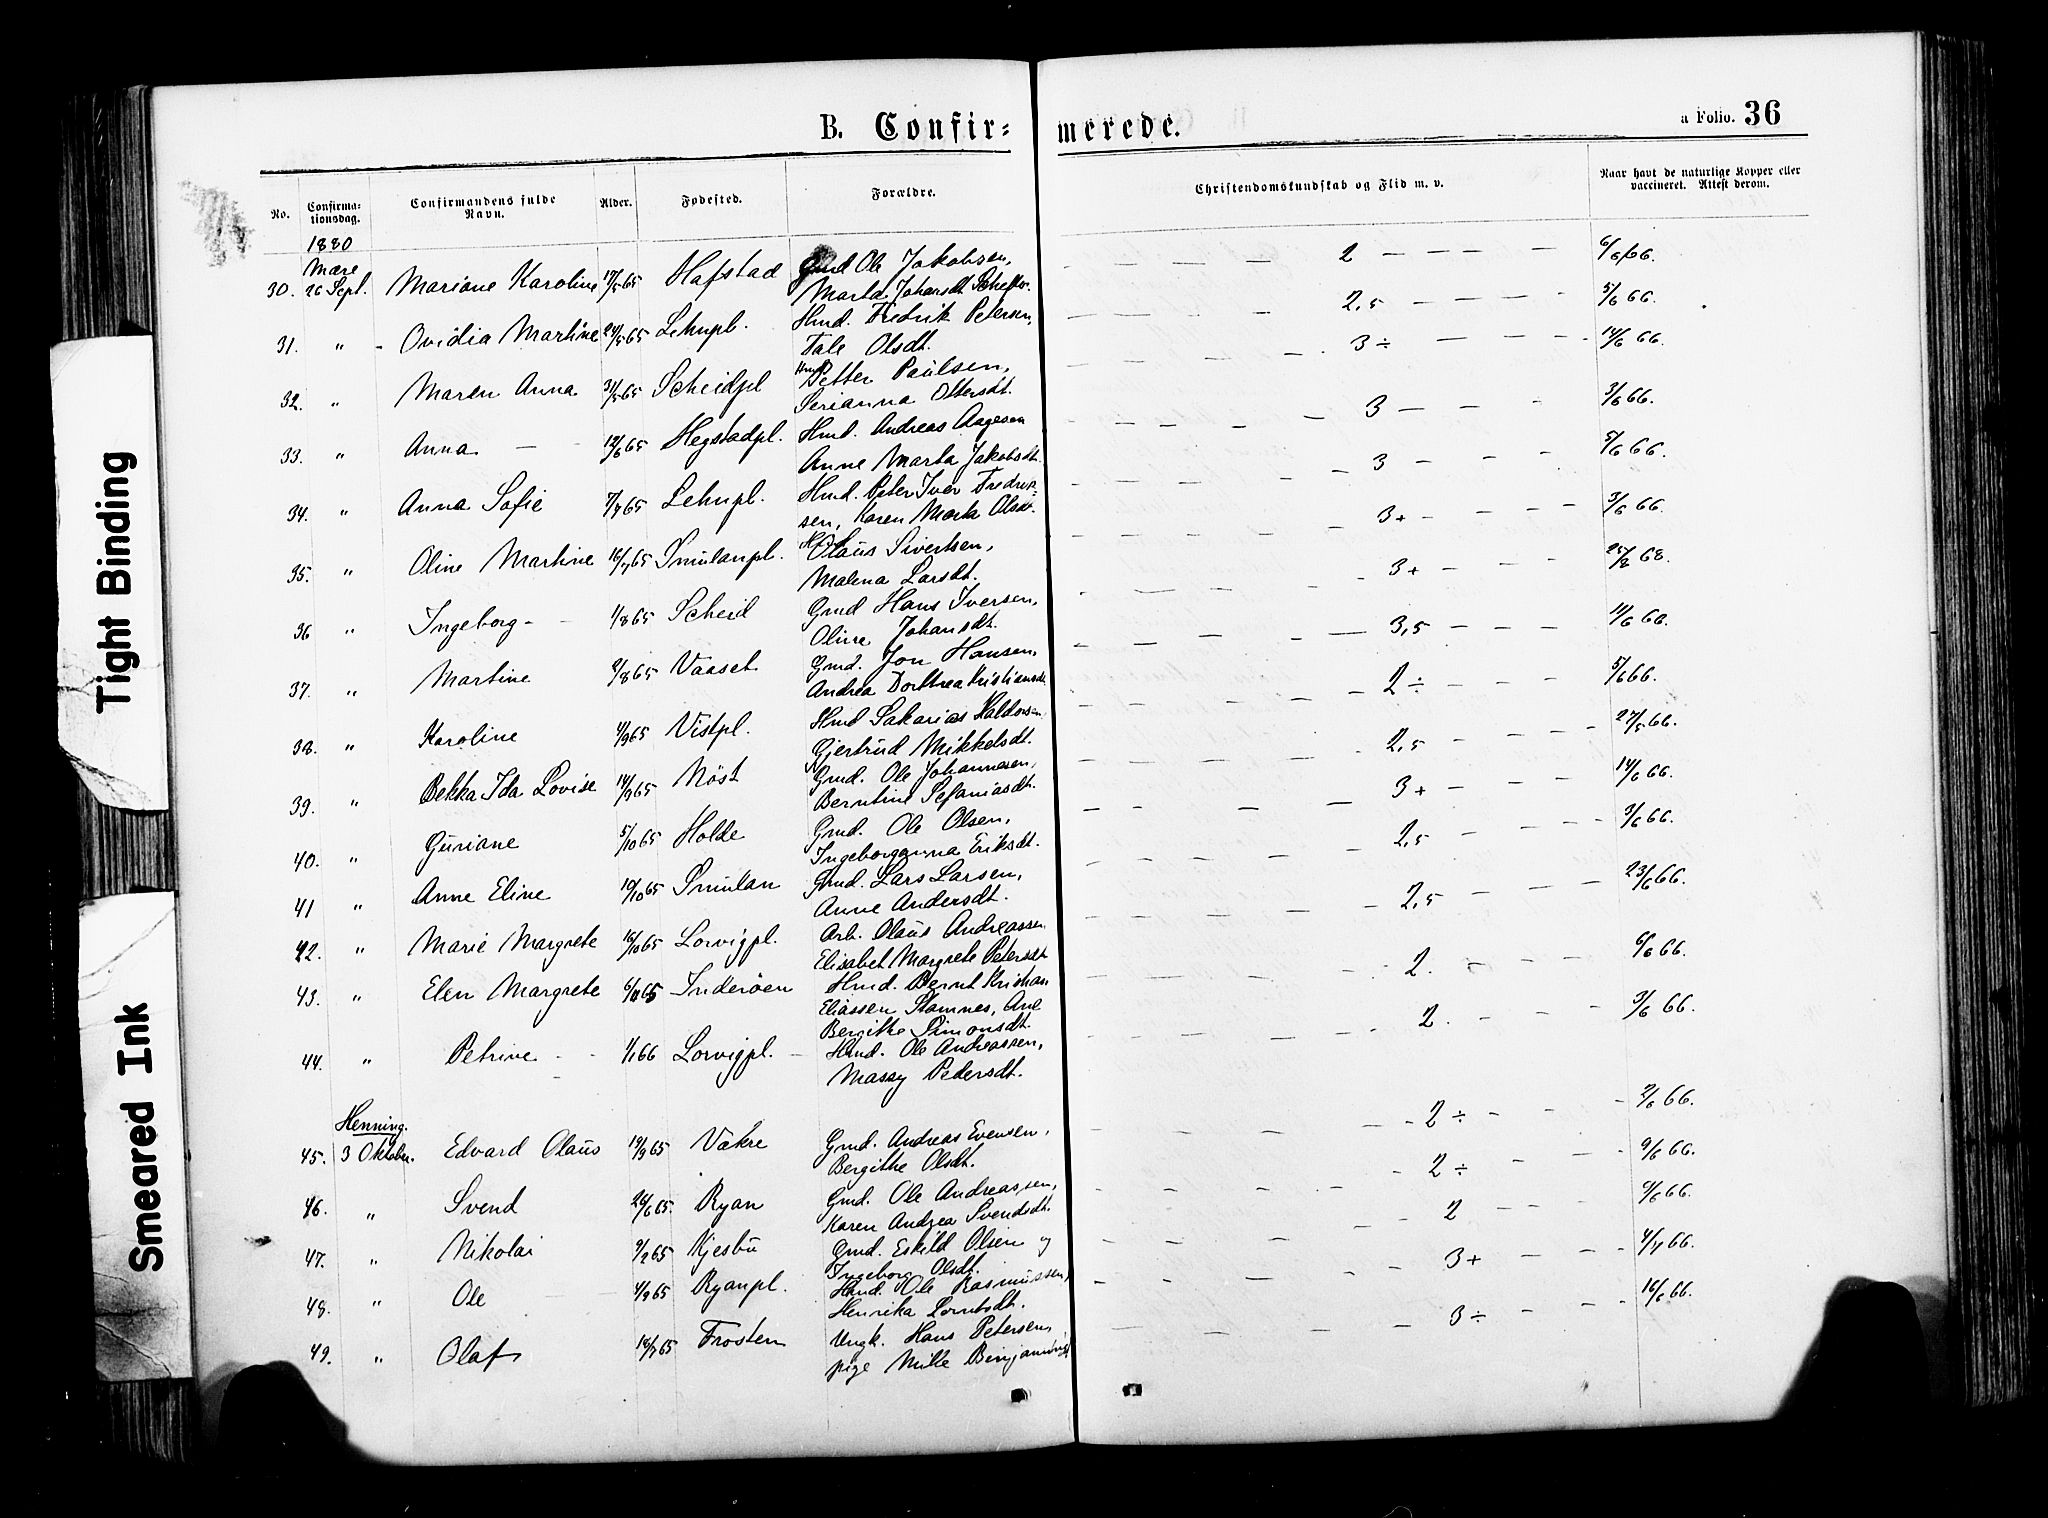 Tight Binding
Smeared Ink
B. Confir= merede.
a Folio. 36
No. Confirma- tionsdag. Confirmandens fulde Navn. Alder. Fødested. Forældre. Christendomskundskab og Flid m. v. Naar havt de naturlige Kopper eller vaccineret. Attest derom.
1880
Mære
30. 26 Sept. Mariane Karoline 17/5 65 Hafstad Gmd Ole Jakobsen, 2 6/6 66.
Marta Johansdt
31. " Ovidia Martine 24/5 65 Lehnpl. Hmd. Fredrik Petersen, 2,5 5/6 66.
Tale Olsdt.
32. " Maren Anna 31/5 65 Scheidpl Hmd Petter Paulsen, 3 ÷ 14/6 66.
Serianna Ottersdt.
33. " Anna 12/6 65 Hegstadpl. Hmd. Andreas Aagesen 3 3/6 66.
Anne Marta Jakobsdt.
34. " Anna Sofie 7/7 65 Lehnpl. Hmd. Peter Iver Fredrik= 3 5/6 66.
sen, Karen Marta Olsdt.
35. " Oline Martine 16/7 65 Smulanpl. Olaus Sivertsen, 3+ 3/6 66.
Malena Larsdt.
36 " Ingeborg 1/8 65 Scheid Gmd Hans Iversen, 3+ 25/8 68.
Oline Johansdt.
37. " Martine 2/8 65 Vaaset Gmd. Jon Hansen, 3,5 11/6 66.
Andrea Dorthea Kristiansdt.
38. " Karoline 4/9 65 Vistpl. Hmd Sakarias Haldorsen 2 ÷ 5/6 66.
Gjertrud Mikkelsdt.
39. " Bekka Ida Lovise 14/9 65 Möst Gmd. Ole Johannesen, 2,5 27/5 66.
Berntine Sefaniasdt.
40. " Guriane 5/10 65 Holde Gmd. Ole Olsen, 3+ 14/6 66.
Ingeborganna Eriksdt.
41 " Anne Eline 10/10 65 Smulan Gmd. Lars Larsen, 2,5 3/6 66.
Anne Andersdt.
42. " Marie Margrete 16/10 65 Lorvigpl. Arb. Olaus Andreassen 2,5 23/6 66.
Elisabet Margrete Petersdt
43. " Elen Margrete 6/11 65 Inderöen Hmd. Bernt Kristian 2. 6/6 66.
Eliassen Stamnes, Ane
Bergitte Simonsdt.
44. " Petrine 1/1 66 Lorvigpl. Hmd. Ole Andreassen, 2. 3/6 66.
Massy Pedersdt.
Henning.
45. 3 Oktober. Edvard Olaus 19/9 65 Vakre Gmd. Andreas Evensen, 2 ÷ 2/6 66.
Bergithe Olsdt.
46. " Svend 26/6 65. Ryan Gmd. Ole Andreassen, 2 ÷ 9/6 66.
Karen Andrea Svendsdt.
47. " Nikolai 9/2 65 Kjesbu Gmd. Eskild Olsen og 2 9/6 66.
Ingeborg Olsdt.
48. " Ole 4/9 65 Ryanpl. Hmd. Ole Rasmussen, 3+ 4/7 66.
Henrika Lorntsdt.
49. " Olaf 18/7 65 Frosten Ungk. Hans Petersen, 3 ÷ 16/6 66.
pige Mille